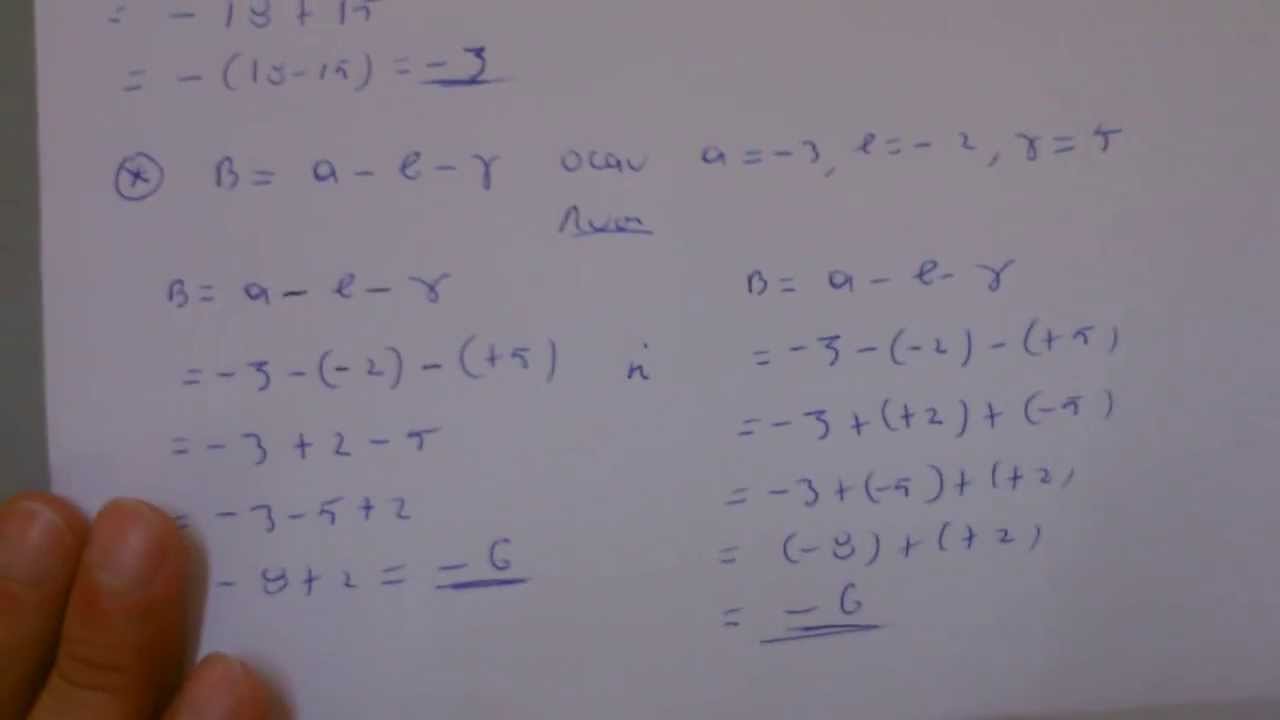 = - 18 + 15
= - (18-15) = -3
* B = α - β - γ όταν α = -3, β = -2, γ = 5
Λύση
B = α - β - γ
= -3 - (-2) - (+5) ή
= -3 + 2 - 5
= -3 - 5 + 2
- 8 + 2 = -6
B = α - β - γ
= -3 - (-2) - (+5)
= -3 + (+2) + (-5)
= -3 + (-5) + (+2)
= (-8) + (+2)
= -6